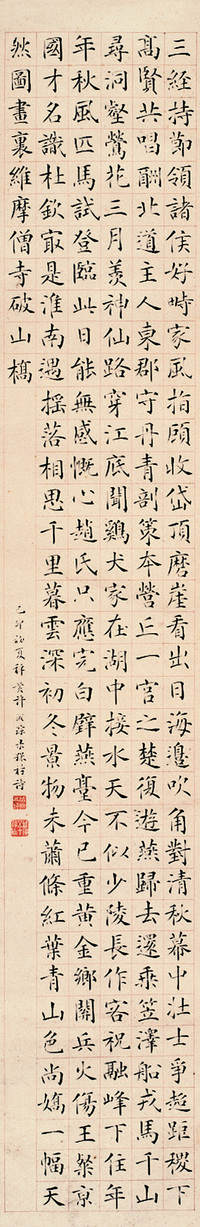 三經持節領諸侯好時家風指顧收岱頂磨崖看出日海邊吹角對清秋幕中壯士爭超距稷下
高賢共唱酬北道主人東郡守丹青剖策本營丘一官之楚復遊燕歸去還乘笠澤船戎馬千山
尋洞壑鶯花三月羨神仙路穿江底聞鷄犬家在湖中接水天不似少陵長作客祝融峰下住年
年秋風匹馬試登臨此日能無感慨心趙氏只應完白璧燕臺今已重黃金鄉關兵火傷王粲京
國才名識杜欽寂是淮南遇搖落相思千里暮雲深初冬景物未蕭條紅葉青山色尚嬌一幅天
然圖畫裏維摩僧寺破山橋
己卯初夏
詩